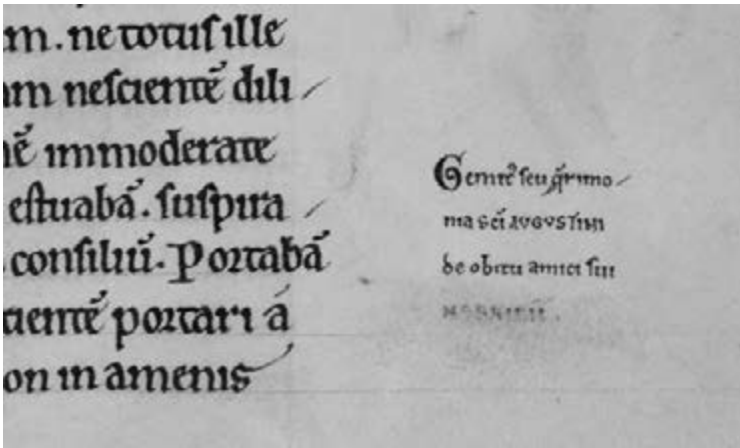 m. ne totus ille
am nescientē dili
nē immoderate
estuabā. suspira
consiliū. Portabā
cientē portari a
on in amenis
Gemitꝰ seu q̄rimo
nia sc̄i AVGVSTINI
de obitu amici sui